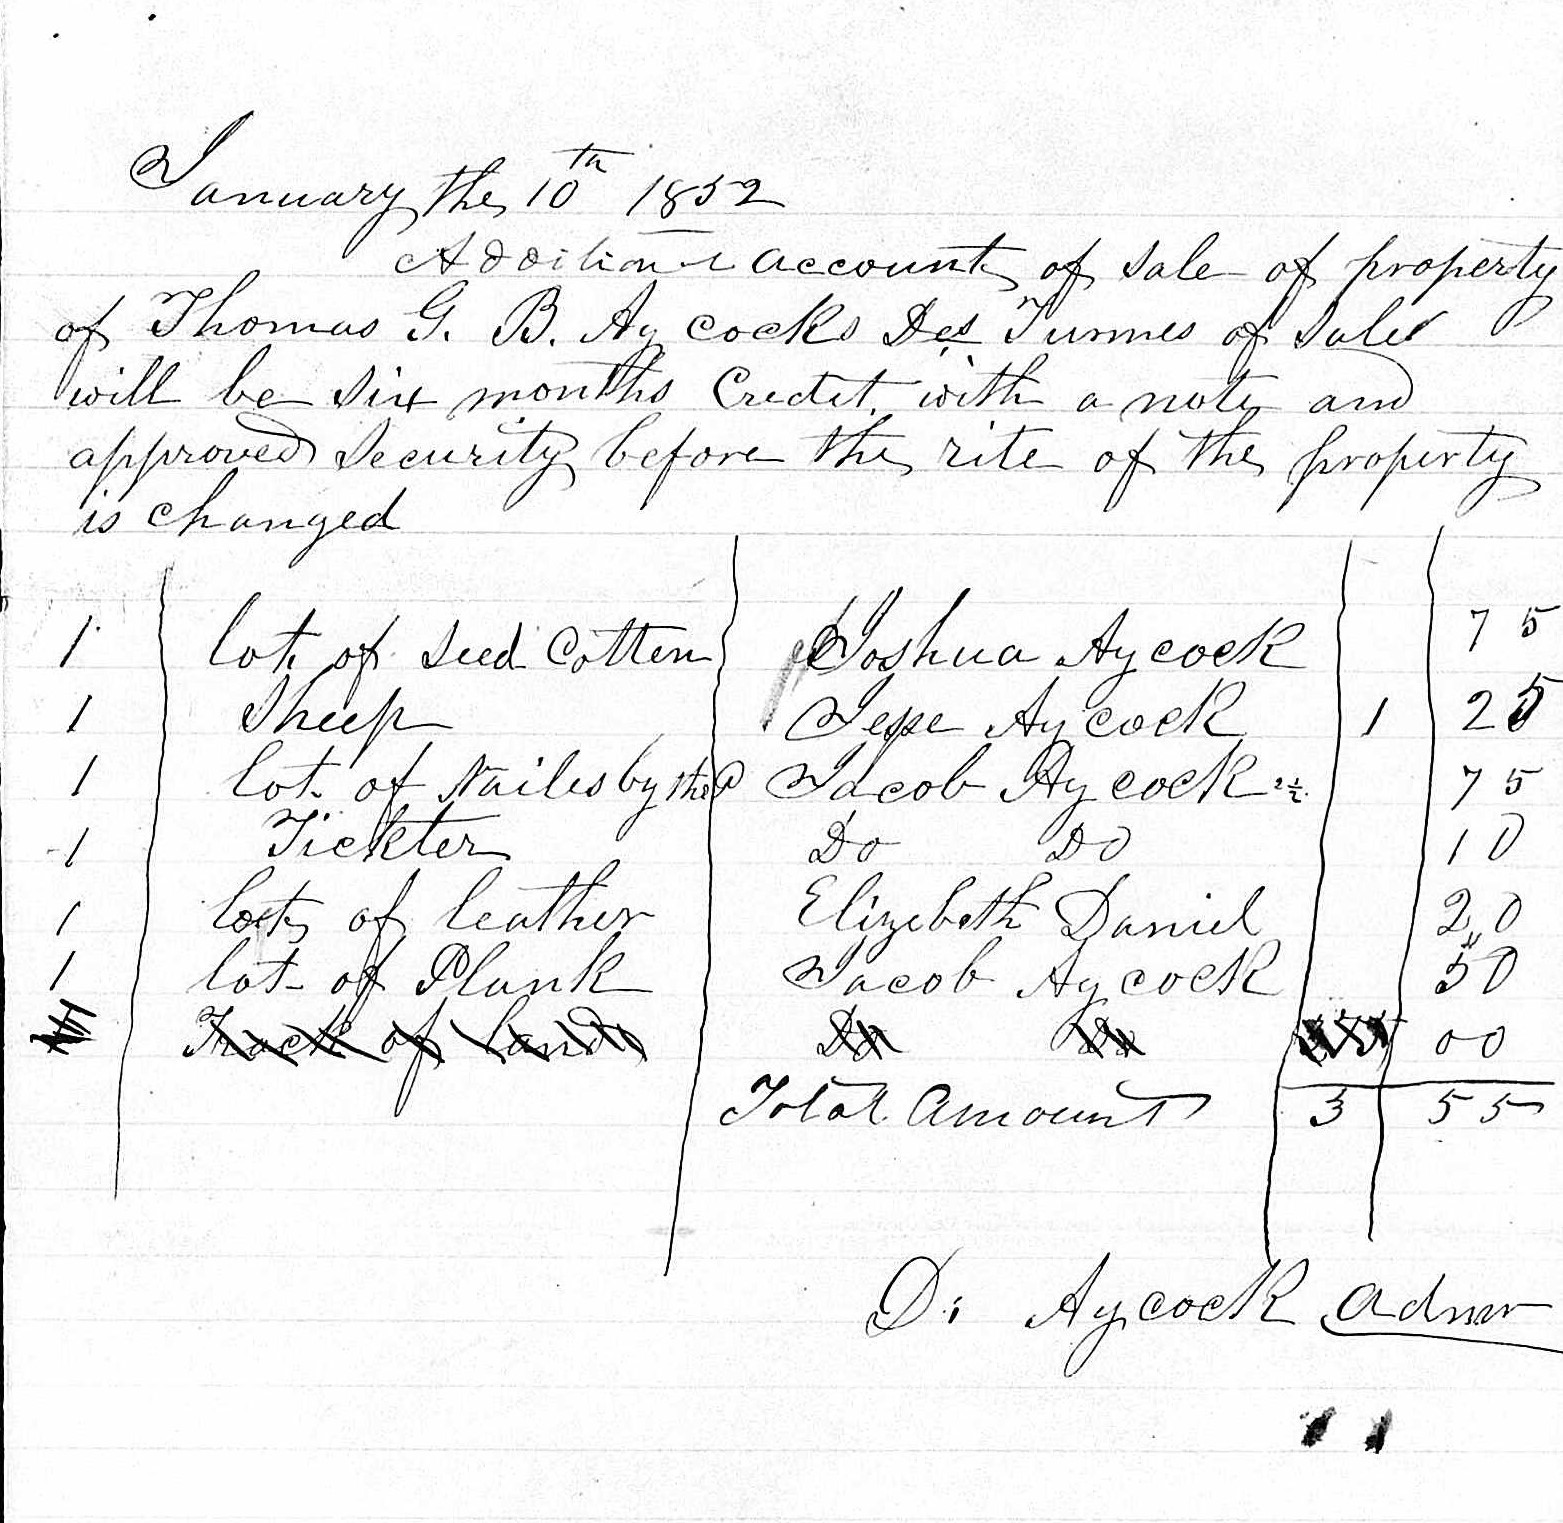 January the 10th 1852
Additional account of sale of property
of Thomas G. B. Aycocks Des Turmes of Sale
will be six months Credit, with a note and
approved security before the rite of the property
is changed
1 lot of seed Cotten Joshua Aycock 75
1 Sheep Jesse Aycock 1 25
1 lot of Nailes by the Jacob Aycock 2½ 75
1 Tickter Do Do 10
1 lot of leather Elizebeth Daniel 20
1 lot of Plank Jacob Aycock 50
Track of land Do Do 00
Total Amount 3 55
D. Aycock Admr